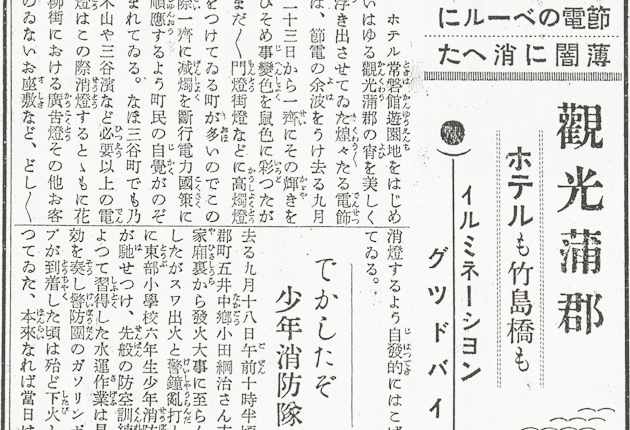 節電のベールに
薄闇に消へた
觀光蒲郡
ホテルも竹島橋も
イルミネーシヨン
グツドバイ
ホテル常磐館遊園地をはじめ
いはゆる觀光蒲郡の宵を美しく
浮き出させてゐた煌々たる電飾
は、節電の余波をうけ去る九月
二十三日から一齊にその輝きを
ひそめ事變色を鼠色に彩つたが
まだ〳〵門燈街燈などに高燭燈
をつけてゐる町が多いのでこの
際一齊に减燭を斷行電力國策に
順應するよう町民の自覺がのぞ
まれてゐる。なほ三谷町でも乃
木山や三谷濱など必要以上の電
燈はこの際消燈するとゝもに花
柳街における廣告燈その他お客
のゐないお座敷など、どし〳〵
消燈するよう自發的にはこば
てゐる。
でかしたぞ
少年消防隊
去る九月十八日午前十時半頃
郡町五井中郷小田綱治さん方
家廂裏から發火大事に至らん
したがスワ出火と警鐘亂打し
に東部小學校六年生少年消防
が馳せつけ、先般の防空訓練
よつて習得した水運作業は見
効を奏し警防團のガソリンポ
プが到着した頃は殆ど下火
つてゐた、本來なれば當日は